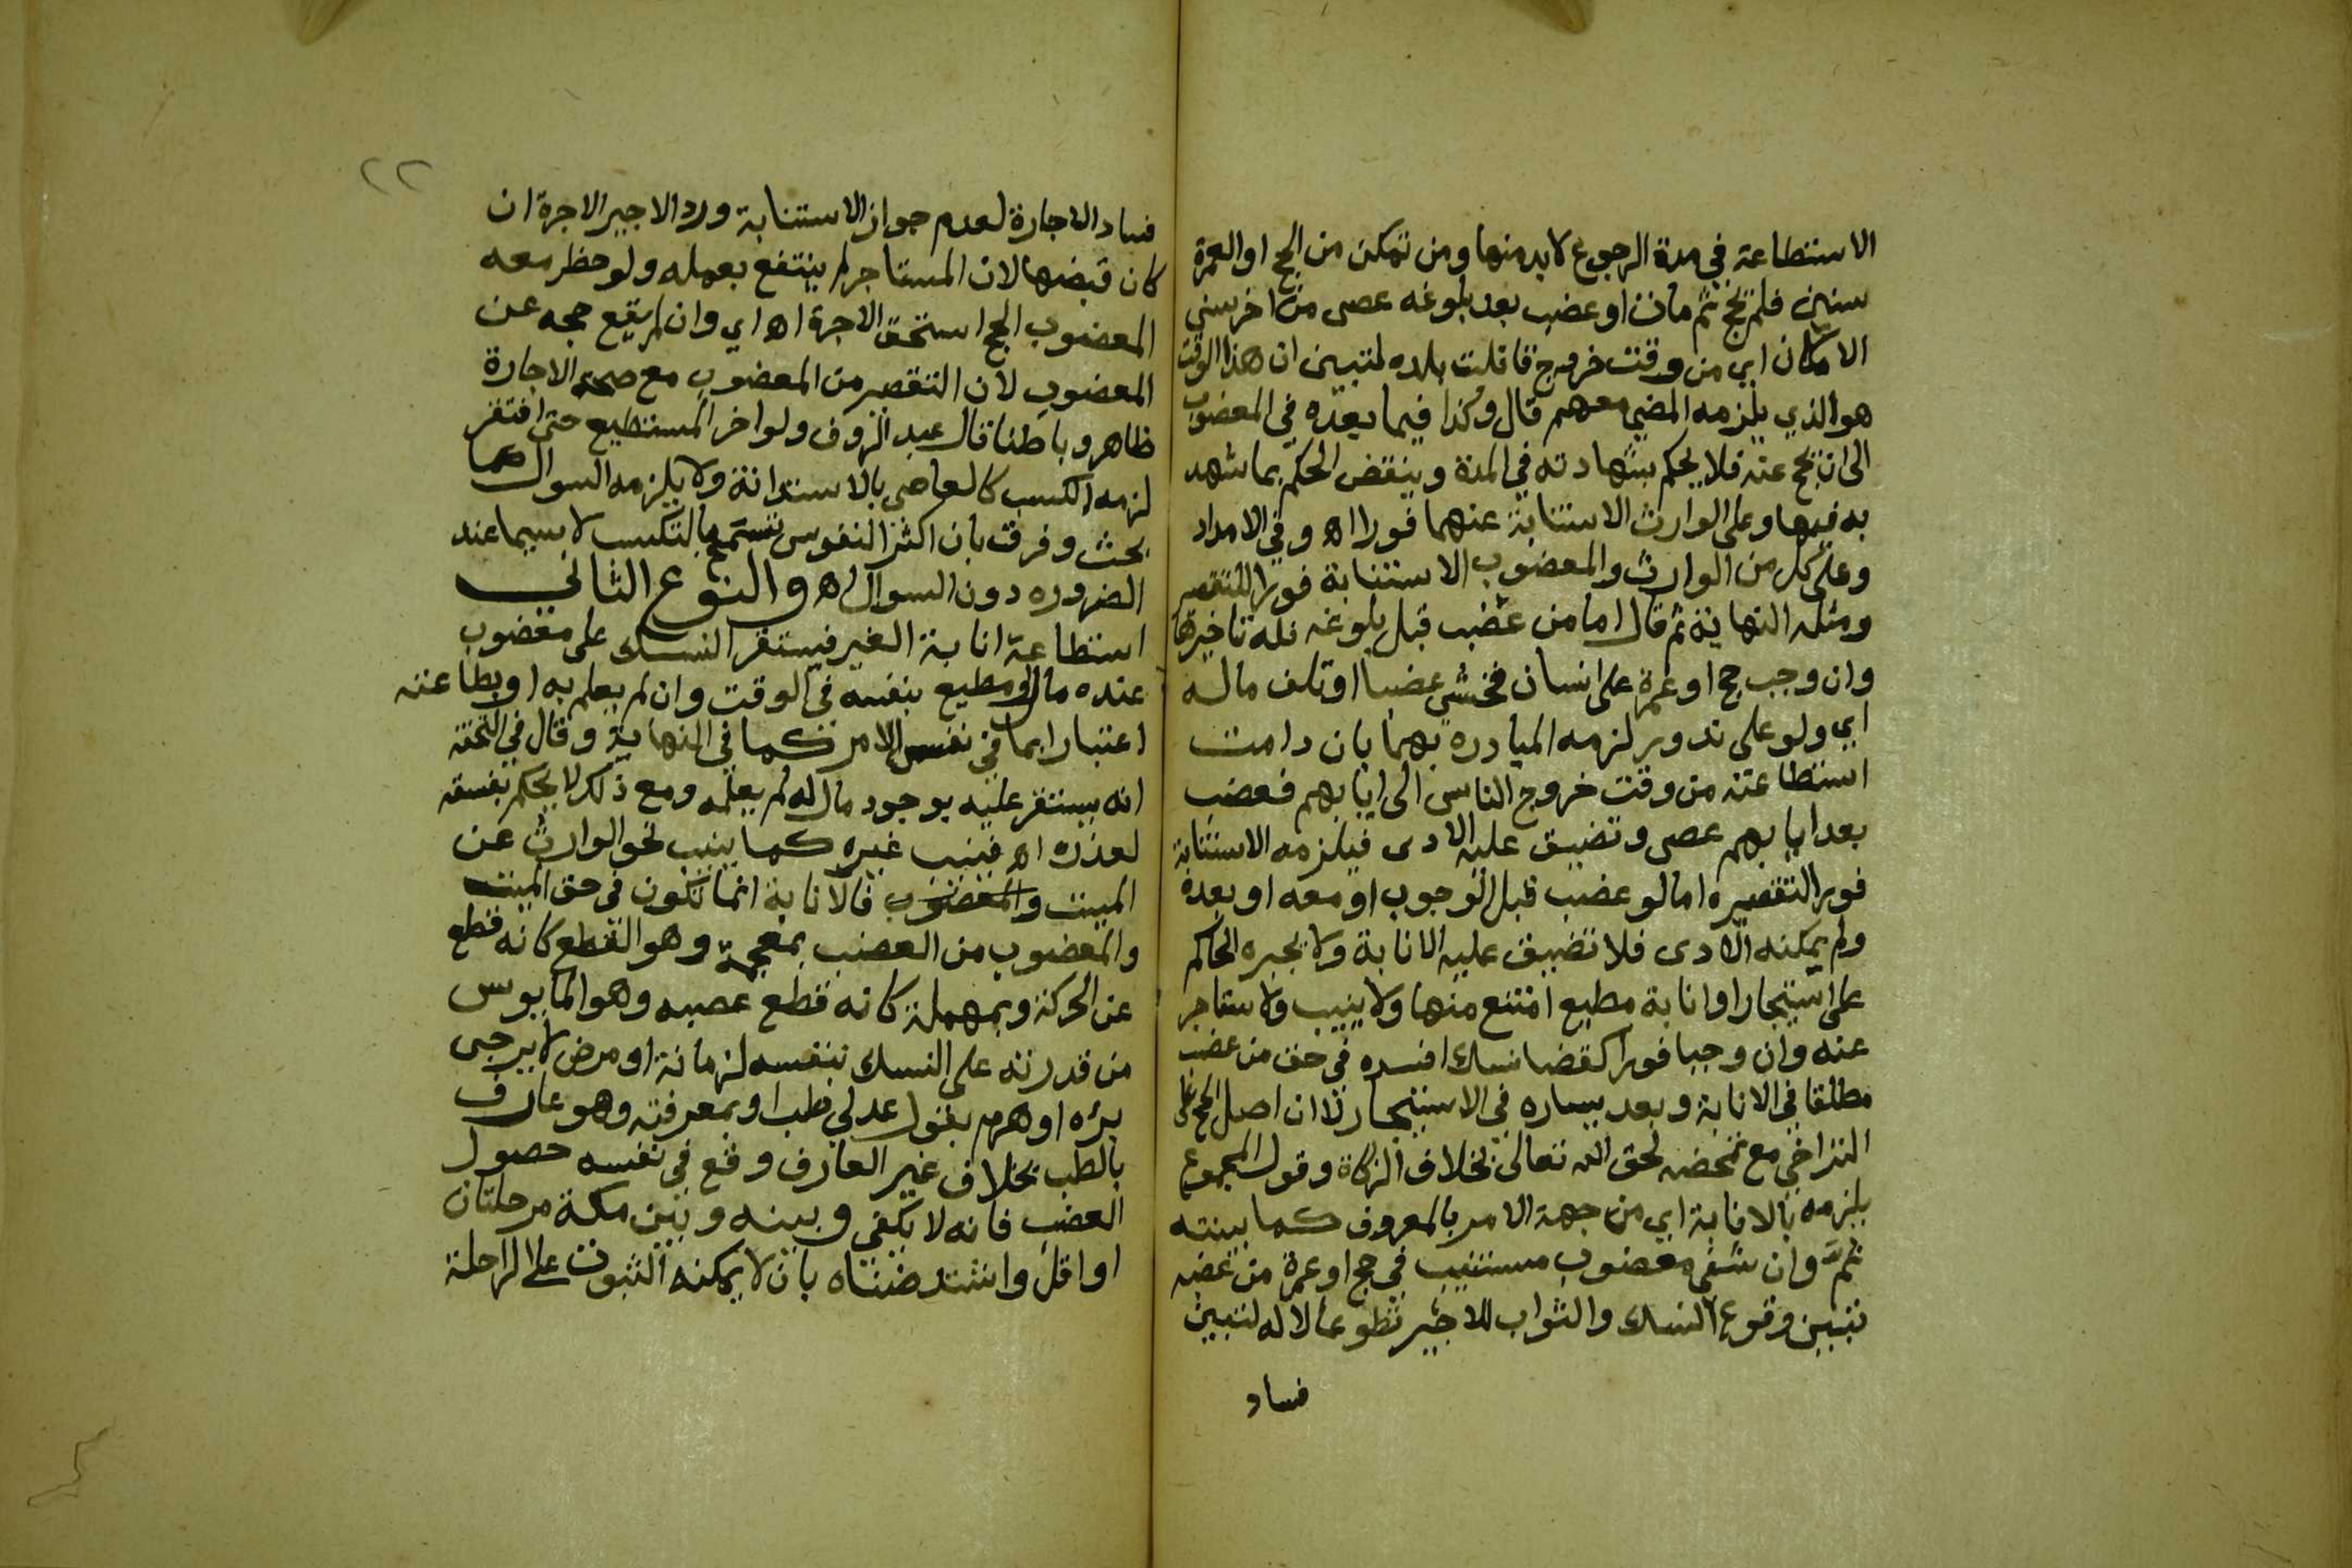 الاستطاعة في مدة الرجوع لا بد منها ومن تمكن من الحج او العمرة
سنين فلم يحج ثم مات او عضب بعد بلوغه عصى من اخر سني
الامكان اي من وقت خروج قافلة بلده لتبين ان هذا الوقت
هو الذي يلزمه المضي معهم قال وكذا فيما بعده في المعضوب
الى ان يحج عنه فلا يحكم بشهادته في المدة وينقض الحكم بما شهد
به فيها وعلى الوارث الاستنابة عنهما فورا اه وفي الامداد
وعلى كل من الوارث والمعضوب الاستنابة فورا للتقصير
ومثله النهاية ثم قال اما من عضب قبل بلوغه فله تاخيرها
وان وجب حج او عمرة على انسان فخشي عضبا او تلف ماله
اي ولو على ندور لزمه المبادرة بهما بان دامت
استطاعته من وقت خروج الناس الى ايابهم فعضب
بعد ايابهم عصى وتضيق عليه الادى فيلزمه الاستنابة
فورا لتقصيره اما لو عضب قبل الوجوب او معه او بعده
ولم يمكنه الادى فلا تضييق عليه الانابة ولا يجبره الحاكم
على استيجار او انابة مطيع امتنع منها ولا ينيب ولا يستاجر
عنه وان وجبا فورا كقضا نسك افسده في حق من عضب
مطلقا في الانابة وبعد يساره في الاستيجار لان اصل الحج على
التراخي مع تمحضه لحق الله تعالى بخلاف الزكاة وقول المجموع
يلزمه بالانابة اي من جهة الامر بالمعروف كما بينته
ثم وان شفي معضوب مستنيب في حج او عمرة من عضبه
تبين وقوع النسك والثواب للاجير تطوعا لا له لتبين
فساد
٢٢
فساد الاجارة لعدم جواز الاستنابة ورد الاجير الاجرة ان
كان قبضها لان المستاجر لم ينتفع بعمله ولو حظر معه
المعضوب الحج استحق الاجرة اه اي وان لم يقع حجه عن
المعضوب لان التقصير من المعضوب مع صحة الاجارة
ظاهر وباطنا قال عبد الروف ولو اخر المستطيع حتى افتقر
لزمه الكسب كالعاصي بالاستدانة ولا يلزمه السوال كما
بحث وفرقت بان اكثر النفوس تسمح بالتكسب لا سيما عند
الضروره دون السوال اه والنوع الثاني
استطاعة انابة الغير فيستقر النسك على معضوب
عنده مال او مطيع بنفسه في الوقت وان لم يعلم به او بطاعته
اعتبارا بما في نفس الامر كما في النهاية وقال في التحفة
انه يستقر عليه بوجود مال له لم يعلمه ومع ذلك لا يحكم بفسقه
لعذره اه فينيب غيره كما ينيب نحو الوارث عن
الميت والمعضوب فالانابة انما تكون في حق الميت
والمعضوب من العضب بمعجمة وهو القطع كانه قطع
عن الحركة وبمهملة كانه قطع عصبه وهو المايوس
من قدرته على النسك بنفسه لزمانة او مرض لا يرجى
برءه او هرم بقول عدلي طب او بمعرفته وهو عارف
بالطب بخلاف غير العارف وقع في نفسه حصول
العضب فانه لا يكفي وبينه وبين مكة مرحلتان
او اقل واشتد ضناه بان لا يمكنه الثبوت على الراحلة